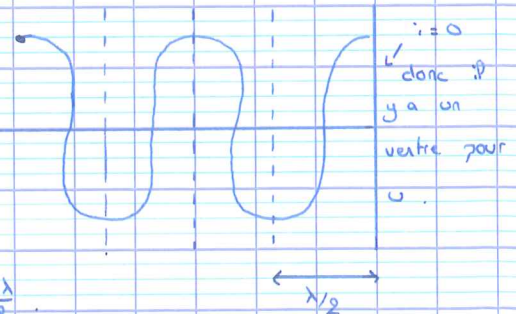 i = 0
donc il
y a un
ventre pour
u.
λ/2